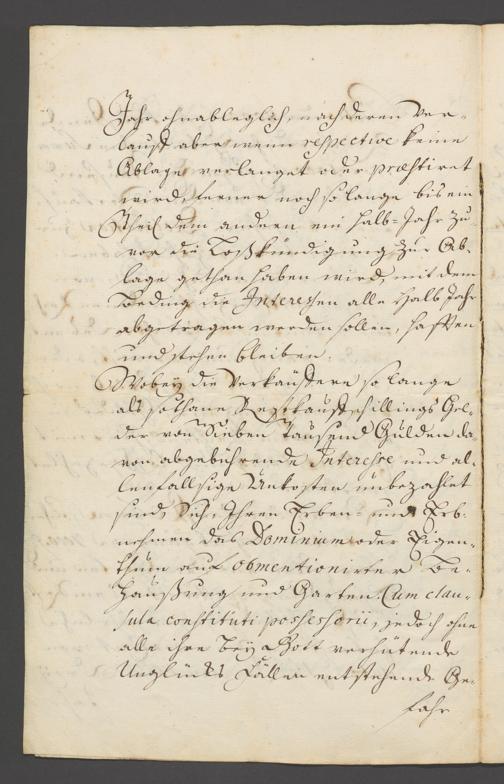 Jahr ohnableglich, nach deren Ver-
lauff aber wenn respective keine
Ablage verlanget oder præstiret
wird, ferner noch so lange bis ein
Theil dem andern ein halb-Jahr zu-
vor die Loßkündigung zur Ab-
lage gethan haben wird, mit dem
Beding die Interessen alle Halb Jahr
abgetragen werden sollen, hafften
und stehen bleiben.
Wobey die Verkäuffere so lange
als sothane Restkauffschillings Gel-
der von Sieben Tausend Gulden da-
von abgebührende Interesse und al-
lenfallsige Unkosten unbezahlet
sind, Sich, Ihren Erben- und Erb-
nehmen das Dominium oder Eigen-
thum auf obmentionirter Be-
haußung und Garten Cum clau-
sula constituti possessorii, jedoch ohne
alle ihre bey Gott verhütende
Unglücks Fällen entstehende Ge-
fahr